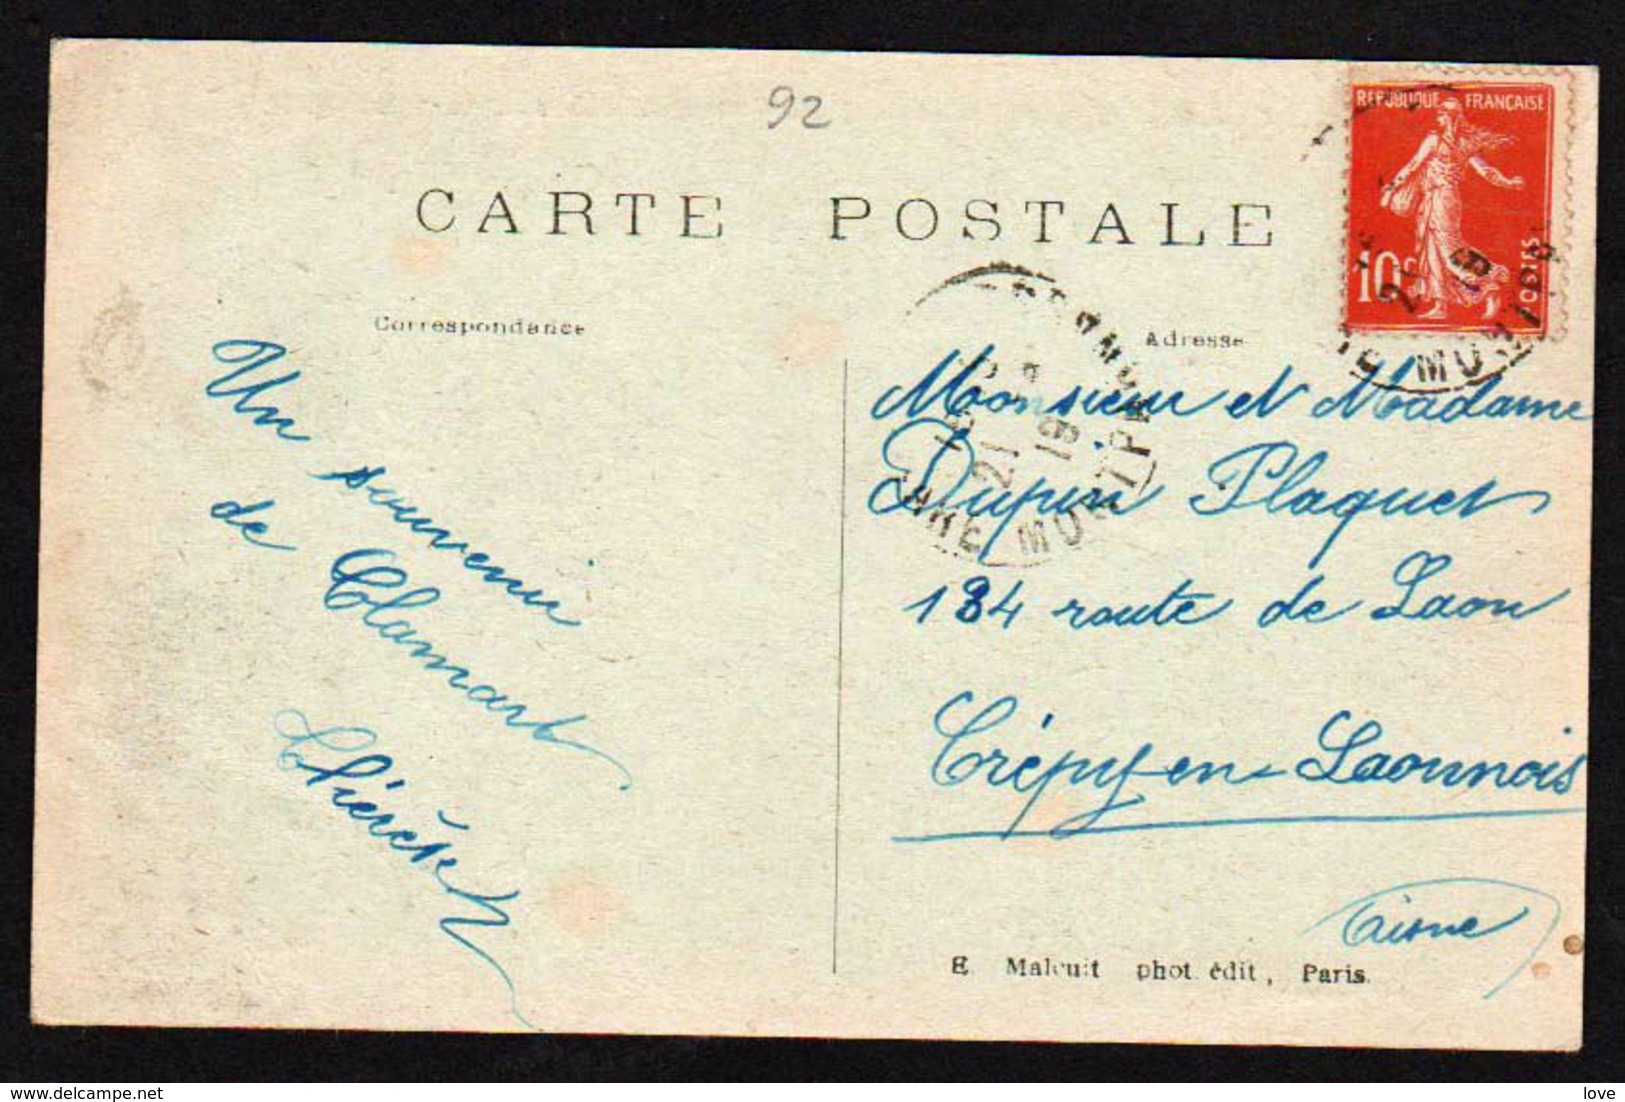 92
RÉPUBLIQUE FRANÇAISE
10c
POSTES
CARTE POSTALE
Correspondance
Adresse
Un souvenir
de Clamart
Monsieur et Madame
Dupin Plaquet
134 route de Laon
Crépy-en-Laonnois
Aisne
E Malcuit phot. édit, Paris.
love